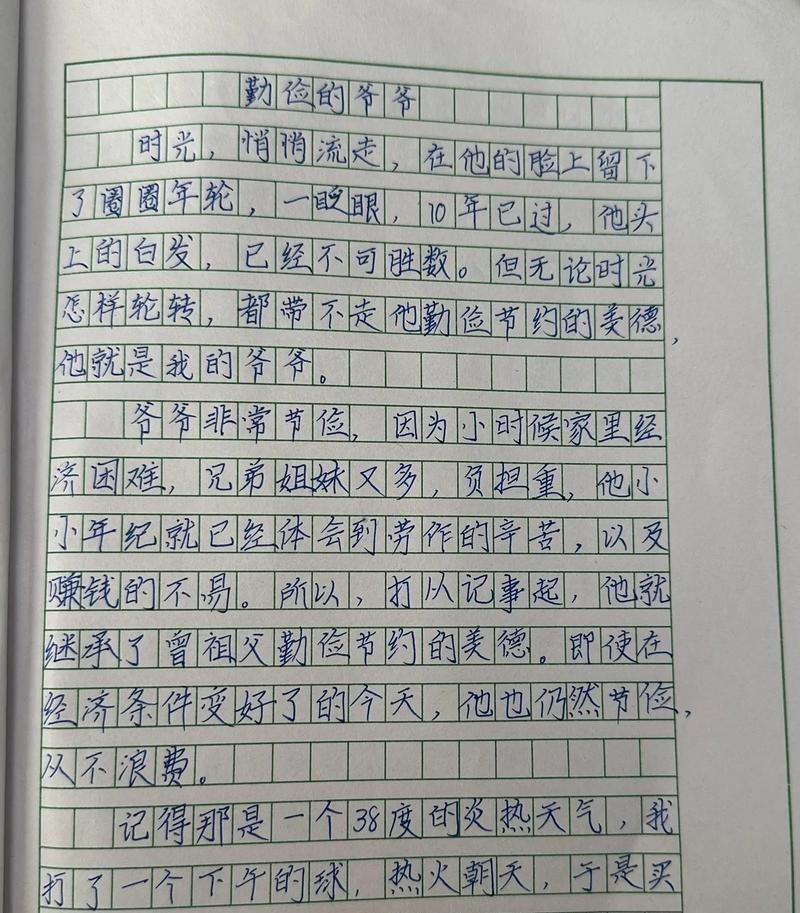 勤俭的爷爷
时光，悄悄流走，在他的脸上留下
了圈圈年轮，一眨眼，10年已过，他头
上的白发，已经不可胜数。但无论时光
怎样轮转，都带不走他勤俭节约的美德，
他就是我的爷爷。
爷爷非常节俭，因为小时候家里经
济困难，兄弟姐妹又多，负担重，他小
小年纪就已经体会到劳作的辛苦，以及
赚钱的不易。所以，打从记事起，他就
继承了曾祖父勤俭节约的美德。即使在
经济条件变好了的今天，他也仍然节俭，
从不浪费。
记得那是一个38度的炎热天气，我
打了一个下午的球，热火朝天，于是买